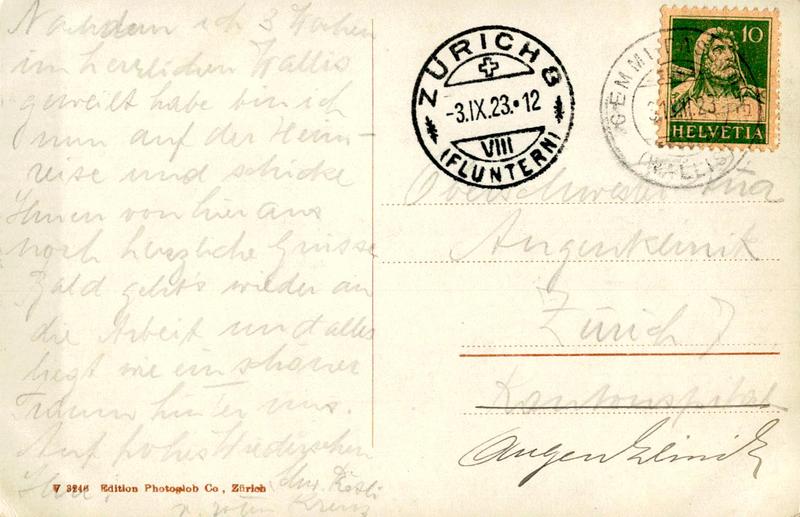 Nachdem ich 3 Wochen
im herrlichen Wallis
geweilt habe bin ich
nun auf der Heim-
reise und schicke
Ihnen von hier aus
noch herzliche Grüsse
Bald geht's wieder an
die Arbeit und alles
liegt wie ein schöner
Traum hinter uns.
Auf frohes Wiedersehen
Ihre
Schw. Rösli
v. roten Kreuz
V 3246 Edition Photoglob Co., Zürich
ZÜRICH 8
-3.IX.23.•12
VIII
(FLUNTERN)
GEMMI
23
(WALLIS)
10
HELVETIA
Oberschwester
Augenklinik
Zürich 7
Kantonsspital
Augenklinik